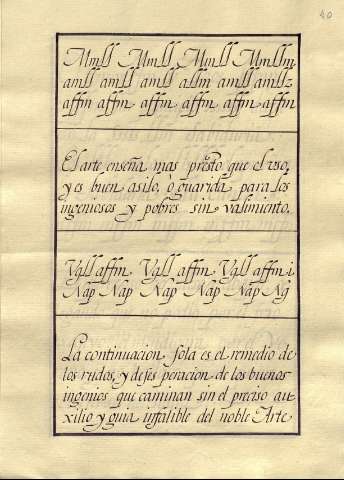 40
Mmſſ Mmſſ Mmſſ Mmſſm
amſſ amſſ amſſ aſſm amſſ amſſz
affm affm affm affm affm affm
El arte enseña mas presto que el vso,
y es buen asilo, ò guarida para los
ingeniosos y pobres sin valimiento.
Vgſſ affm Vgſſ affm Vgſſ affm i
Nap Nap Nap Nap Nap Ng
La continuacion sola es el remedio de
los rudos, y deses peracion de los buenos
ingenios que caminan sin el preciso au
xilio y guia infalible del noble Arte